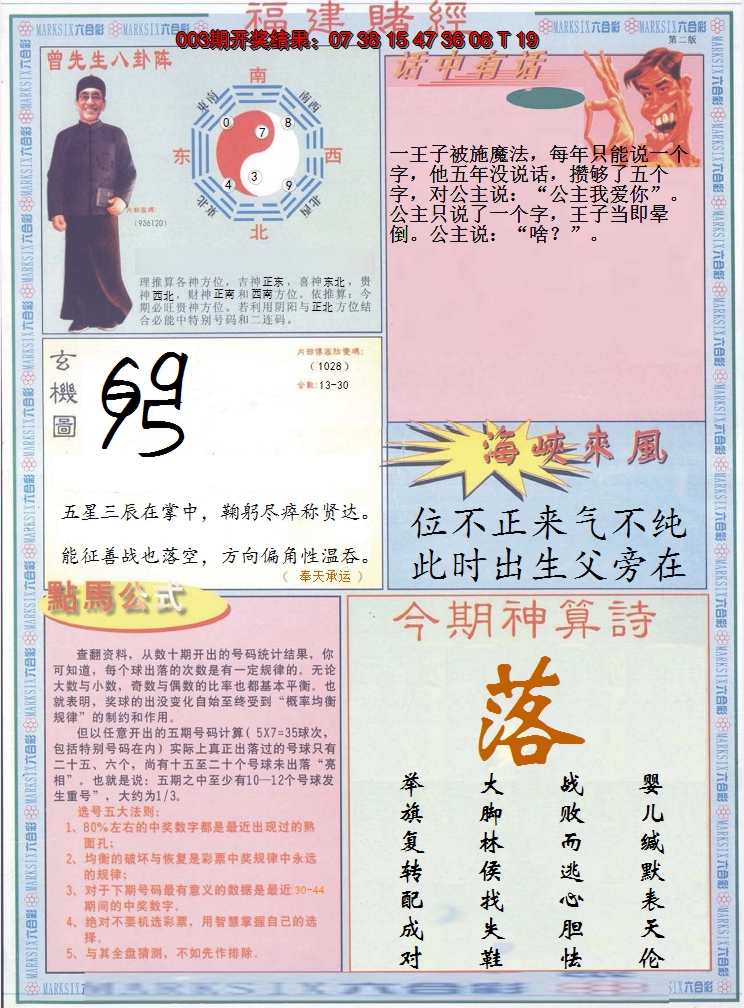 福建賭經
003期开奖结果：07 38 15 47 36 08 T 19
第二版
曾先生八卦阵
南
东南
南西
0
7
8
东
西
4
3
9
东北
西北
北
内部密碼:
(936120)
理推算各神方位，吉神正东，喜神东北，贵
神西北，财神正南和西南方位。依推算：今
期必旺贵神方位。若利用阴阳与正北方位结
合必能中特别号码和二连码。
话中有话
一王子被施魔法，每年只能说一个
字，他五年没说话，攒够了五个
字，对公主说：“公主我爱你”。
公主只说了一个字，王子当即晕
倒。公主说：“啥？”。
玄機圖
内部傳密防變碼:
(1028)
合数:13-30
五星三辰在掌中，鞠躬尽瘁称贤达。
能征善战也落空，方向偏角性温吞。
（ 奉天承运 ）
海峽來風
位不正来气不纯
此时出生父旁在
點馬公式
查翻资料，从数十期开出的号码统计结果，你
可知道，每个球出落的次数是有一定规律的。无论
大数与小数，奇数与偶数的比率也都基本平衡。也
就表明，奖球的出没变化自始至终受到“概率均衡
规律”的制约和作用。
但以任意开出的五期号码计算( 5X7=35球次，
包括特别号码在内) 实际上真正出落过的号球只有
二十五、六个，尚有十五至二十个号球未出落“亮
相”。也就是说：五期之中至少有10—12个号球发
生重号”，大约为1/3。
选号五大法则:
1、80%左右的中奖数字都是最近出现过的熟
面孔；
2、均衡的破坏与恢复是彩票中奖规律中永远
的规律；
3、对于下期号码最有意义的数据是最近 30-44
期间的中奖数字。
4、绝对不要机选彩票，用智慧掌握自己的选
择。
5、与其全盘猜测，不如先作排除。
今期神算詩
落
举旗复转配成对
大脚林侯找失鞋
战败而逃心胆怯
婴儿缄默表天伦
MARKSIX六合彩